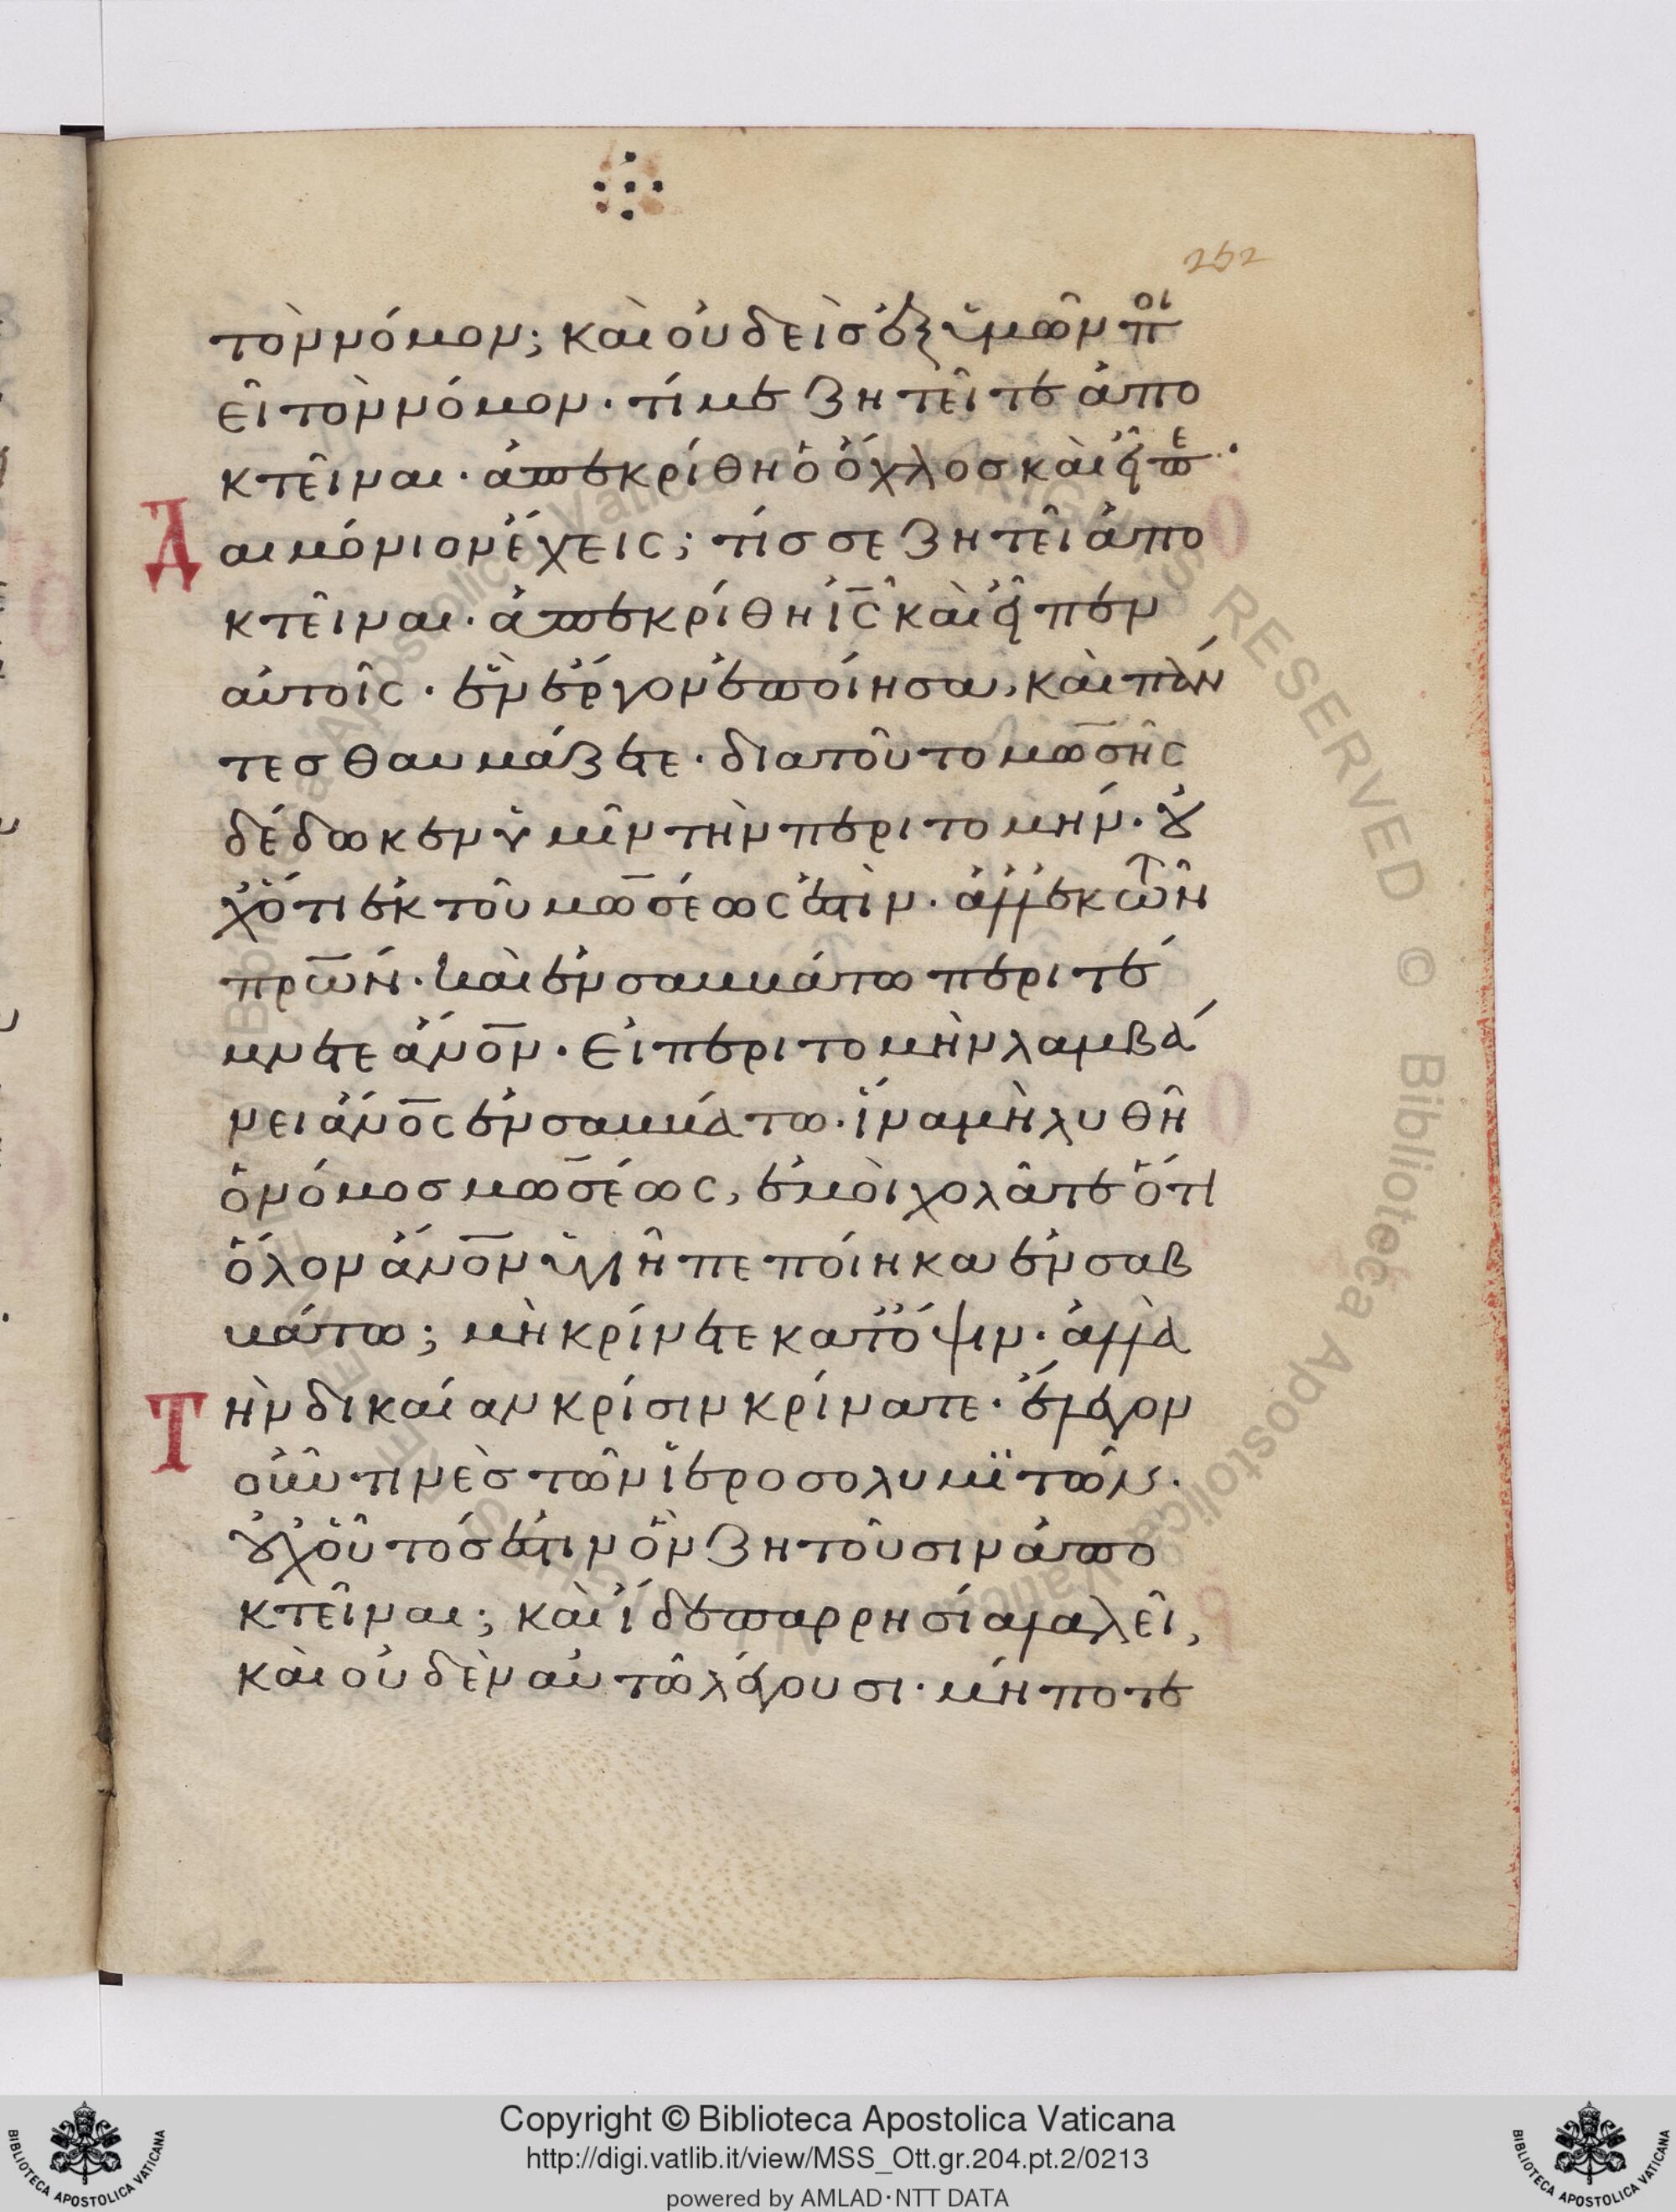 252
τὸν νόμον; καὶ οὐδεὶς ἐξ ὑμῶν ποι
εῖ τὸν νόμον· τί με ζητεῖτε ἀπο
κτεῖναι· ἀπεκρίθη ὁ ὄχλος καὶ εἶπε·
Δαιμόνιον ἔχεις; τίς σε ζητεῖ ἀπο
κτεῖναι· ἀπεκρίθη ἰς καὶ εἶπεν
αὐτοῖς· ἓν ἔργον ἐποίησα, καὶ πάν
τες θαυμάζετε· διατοῦτο μωσῆς
δέδωκεν ὑμῖν τὴν περιτομήν· οὐ
χ ὅτι ἐκ τοῦ μωσέως ἐστὶν· ἀλλ' ἐκ τῶν
πρων· καὶ ἐν σαββάτω περιτέ
μνετε ἄνον· εἰ περιτομὴν λαμβά
νει ἄνος ἐν σαββάτω· ἵνα μὴ λυθῆ
ὁ νόμος μωσέως, ἐμοὶ χολᾶτε ὅτι
ὅλον ἄνον ὑγιῆ πεποίηκα ἐν σαβ
βάτω; μὴ κρίνετε κατ' ὄψιν· ἀλλὰ
Τὴν δικαίαν κρίσιν κρίνατε· ἔλεγον
οὖν τινὲς τῶν ἱεροσολυμϊτῶν·
οὐχ οὗτός ἐστιν ὃν ζητοῦσιν ἀπο
κτεῖναι; καὶ ἴδε παρρησία λαλεῖ,
καὶ οὐδὲν αὐτῶ λέγουσι· μήποτε
Copyright © Biblioteca Apostolica Vaticana
http://digi.vatlib.it/view/MSS_Ott.gr.204.pt.2/0213
powered by AMLAD·NTT DATA
BIBLIOTECA APOSTOLICA VATICANA
BIBLIOTECA APOSTOLICA VATICANA